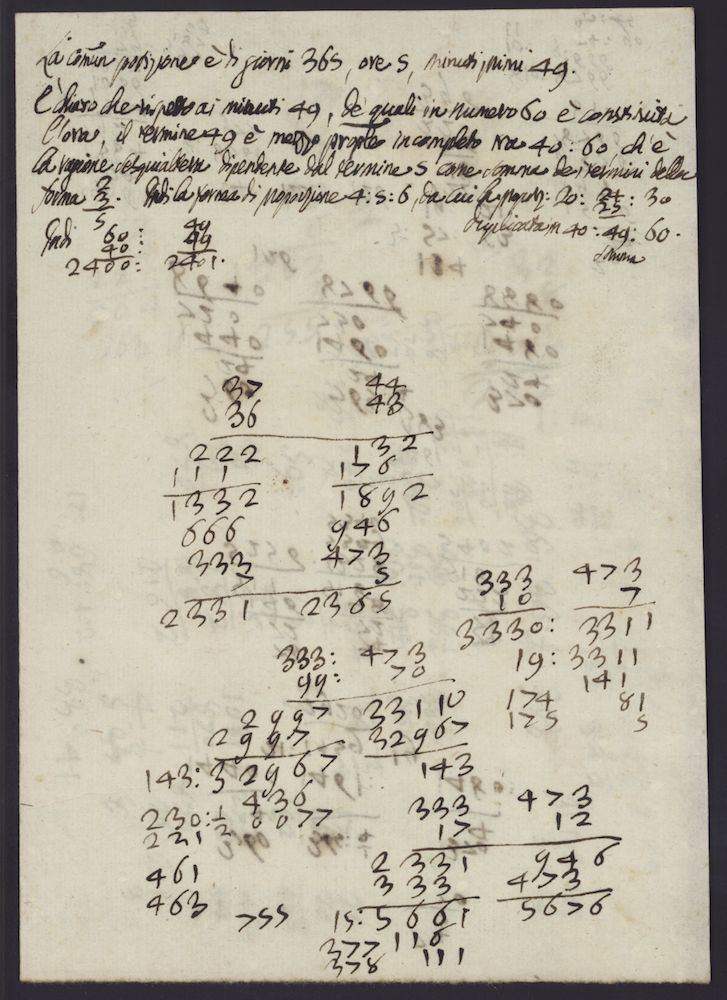 La comun posizione è di giorni 365, ore 5, minuti primi 49.
È chiaro che rispetto ai minuti 49, de' quali in numero 60 è constituita
l'ora, il termine 49 è mezzo proprio incompleto tra 40 : 60 ch'è
la ragione dipendente dal termine 5 come somma de' termini della
forma 2/3. Indi la forma di proporzione 4 : 5 : 6, da cui 20 : 24 : 30
5 25
Indi 60 : 49 duplicata in 40 : 49 : 60.
40 : 49 somma
2400 : 2401.
37 44
36 43
222 132
111 176
1332 1892
666 946
333 473
7 5
2331 2365
333 473
10 7
3330 : 3311
19 : 3311
174 141
175 81
5
333 : 473
99 : 70
2997 33110
2997 32967
143 : 32967 143
436
230 : 1/2 0077
231
461
463
755
333 473
17 12
2331 946
333 473
15 : 5661 5676
377 116
378 111